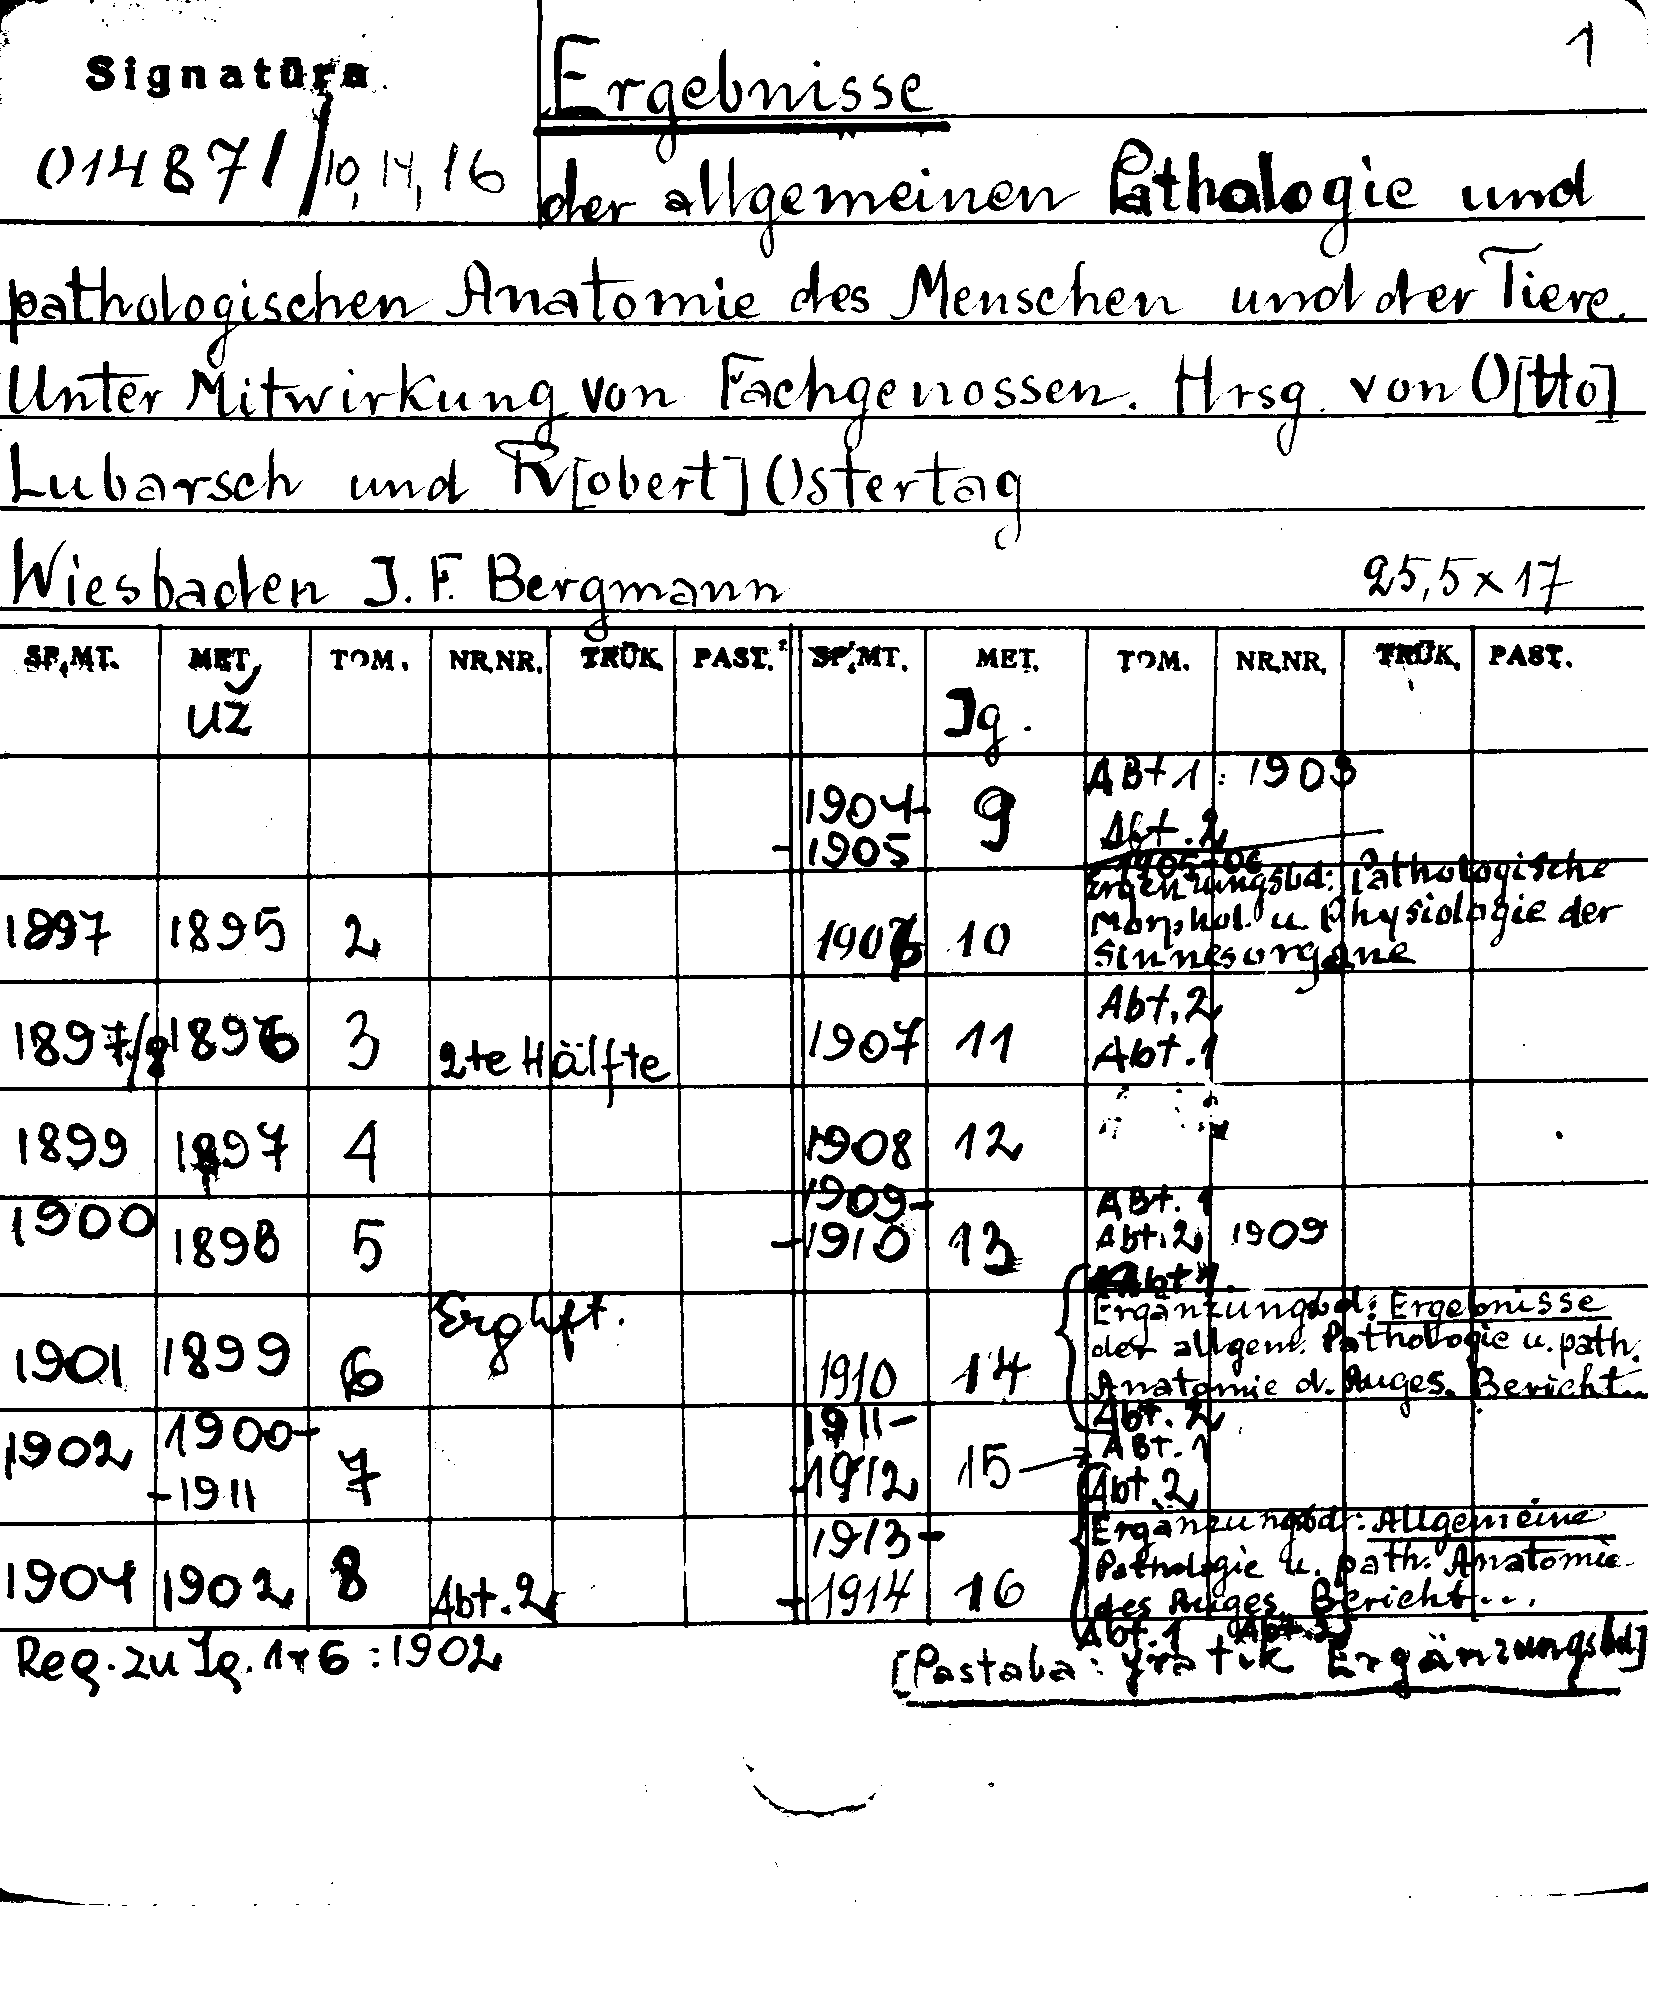 1
Signatūra
014871/10, 14, 16
Ergebnisse
der allgemeinen Pathologie und
pathologischen Anatomie des Menschen und der Tiere.
Unter Mitwirkung von Fachgenossen. Hrsg. von O[tto]
Lubarsch und R[obert] Ostertag
Wiesbaden J. F. Bergmann 25,5 x 17
SP.MT. MET. TOM. NR.NR. TRŪK. PAST. SP.MT. MET. TOM. NR.NR. TRŪK. PAST.
už Jg.
1904- 9 Abt 1: 1903
-1905 Abt. 2
1905-06
Ergänzungsbd: Pathologische
1897 1895 2 10 Morphol. u. Physiologie der
Sinnesorgane
1897/8 1896 3 2te Hälfte 1907 11 Abt. 2
Abt. 1
1899 1897 4 1908 12
1900 1898 5 1909- 13 Abt. 1
-1910 Abt. 2 1909
Abt 1.
1901 1899 6 Erg hft. 1910 14 Ergänzungsbd: Ergebnisse
der allgem. Pathologie u. path.
Anatomie d. Auges. Bericht...
Abt. 2
1902 1900- 7 1911- 15 Abt. 1
-1911 -1912 Abt. 2
1904 1902 8 Abt. 2 1913- 16 Ergänzungsbd: Allgemeine
-1914 Pathologie u. path. Anatomie
des Auges. Bericht...
Abt. 1
Reg. zu Jg. 1-6 : 1902
[Pastaba: yra tik Ergänzungsbd]